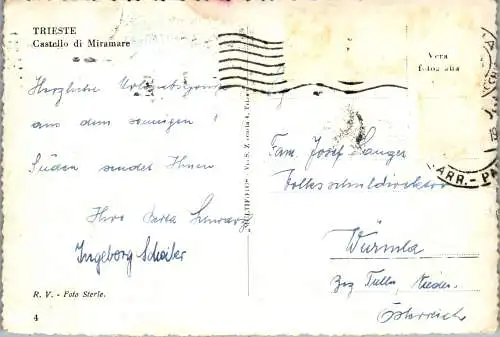 TRIESTE
Castello di Miramare
Herzliche Urlaubsgrüße
aus dem sonnigen
Süden sendet Ihnen
Ihre Berta
Ingeborg
R. V. - Foto Sterle.
4
Vera
fotografia
Fam. Josef
Volksschuldirektor
Würmla
Bez. Tulln, Nieder-
Österreich
ARR.-PA